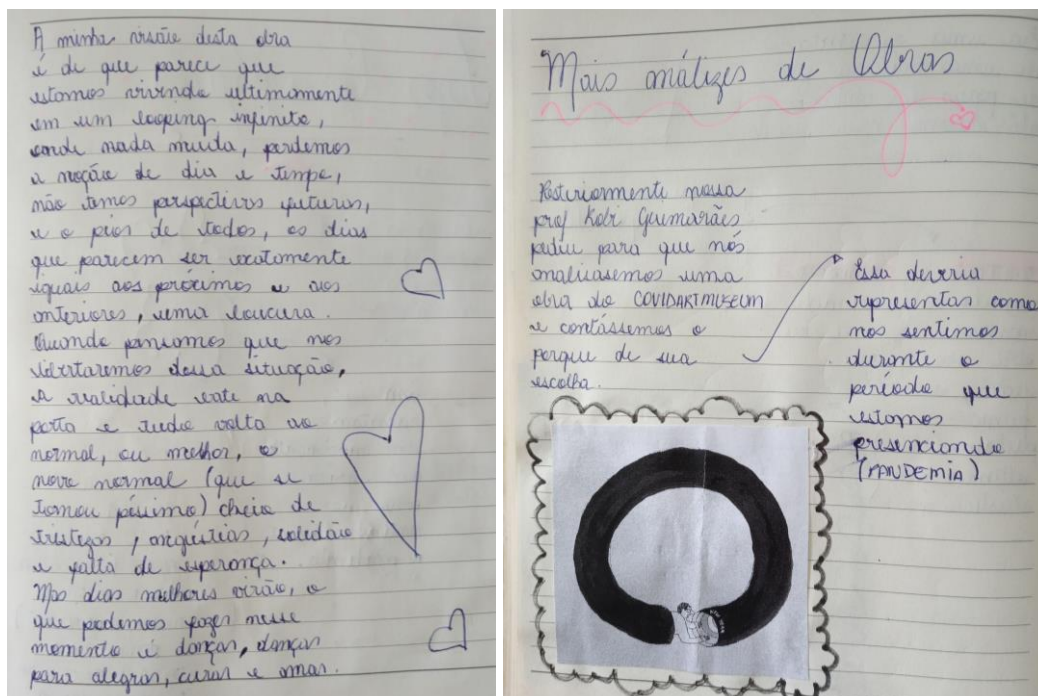 A minha visão desta obra
é de que parece que
estamos vivendo ultimamente
em um looping infinito,
onde nada muda, perdemos
a noção de dia e tempo,
não temos perspectivas futuras,
e o pior de todos, os dias
que parecem ser exatamente
iguais aos próximos e aos
anteriores, uma loucura.
Quando pensamos que nos
libertaremos dessa situação,
a realidade bate na
porta e tudo volta ao
normal, ou melhor, o
novo normal (que se
tornou péssimo) cheio de
tristezas, angústias, solidão
e falta de esperança.
Mas dias melhores virão, o
que podemos fazer nesse
momento é dançar, dançar
para alegrar, curar e amar.
Mais análizes de Obras
Posteriormente nossa
prof Kobi Guimarães
pediu para que nós
analisasemos uma
obra do COVIDARTMUSEUM
e contássemos o
porque de sua
escolha.
Essa deveria
representar como
nos sentimos
durante o
período que
estamos
presenciando
(PANDEMIA)